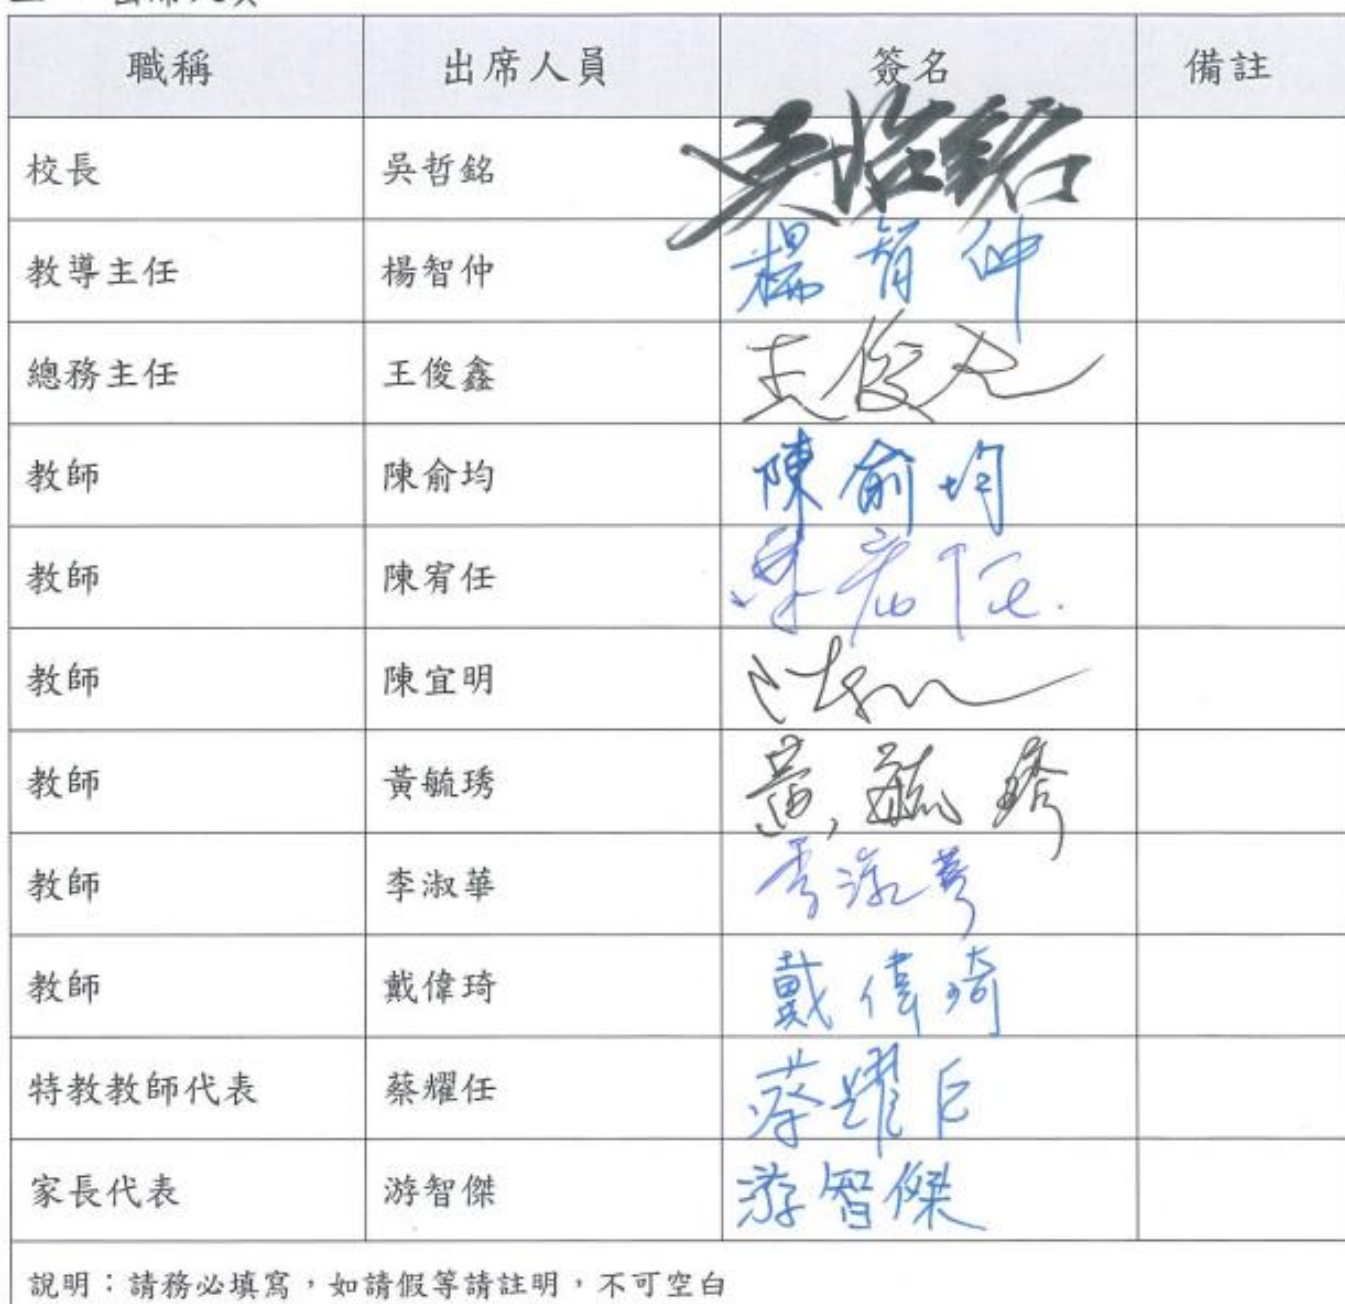 出席人員
職稱 出席人員 簽名 備註
校長 吳哲銘 吳哲銘
教導主任 楊智仲 楊智仲
總務主任 王俊鑫 王俊
教師 陳俞均 陳俞均
教師 陳宥任 陳宥任
教師 陳宜明
教師 黃毓琇 黃毓琇
教師 李淑華 李淑華
教師 戴偉琦 戴偉琦
特教教師代表 蔡耀任 蔡耀任
家長代表 游智傑 游智傑
說明：請務必填寫，如請假等請註明，不可空白